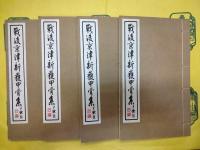 戰後京津新獲甲骨集
戰後京津新獲甲骨集
戰後京津新獲甲骨集
戰後京津新獲甲骨集